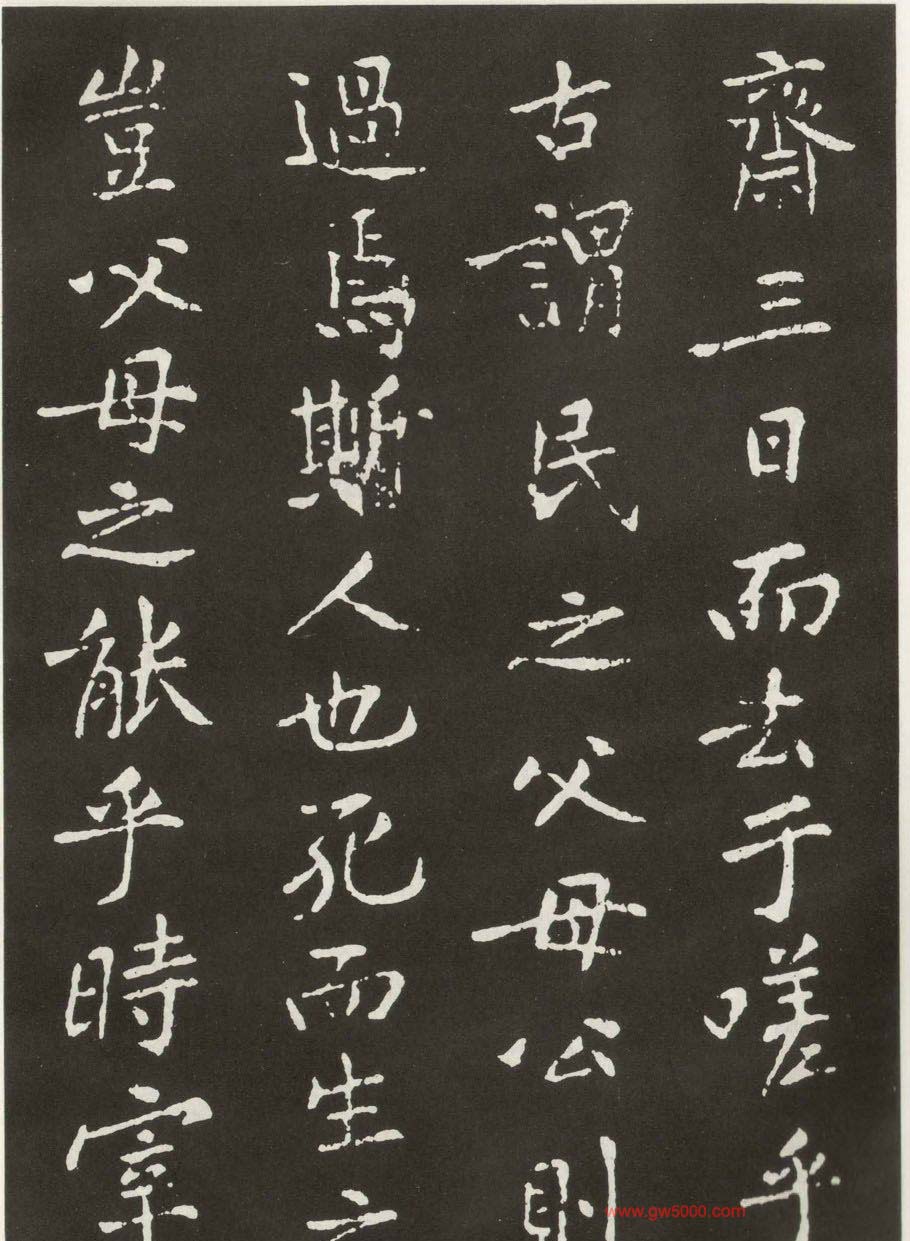 齋三日而去于嗟乎
古謂民之父母公則
過焉斯人也死而生之
豈父母之能乎時宰
www.gw5000.com